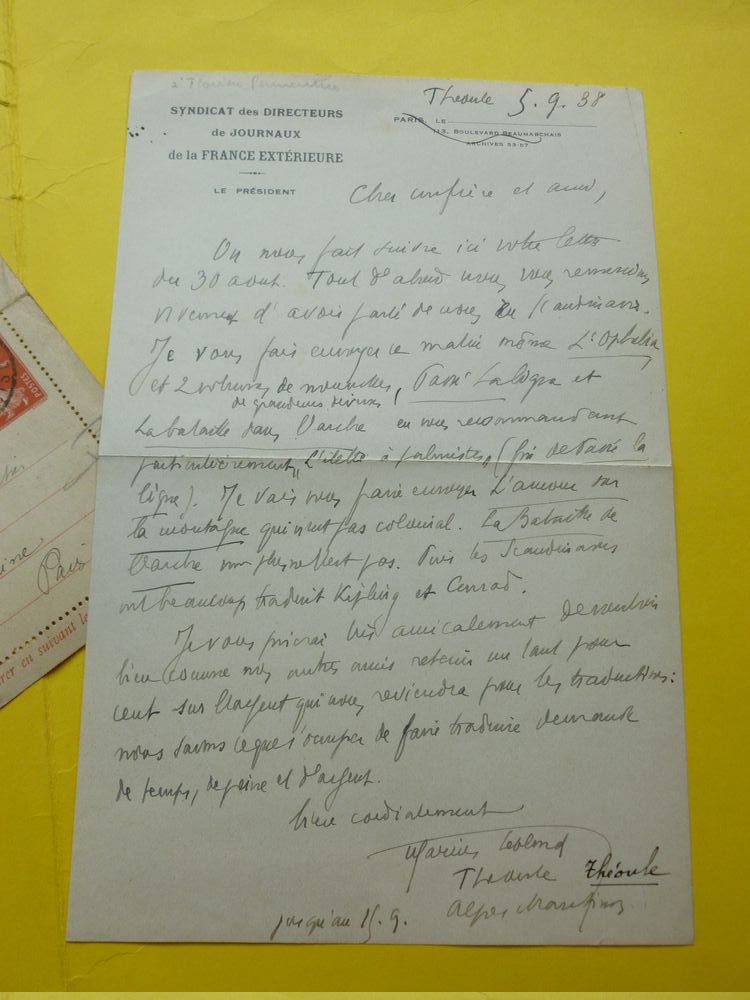 à Florian Parmentier
Théoule 5.9.38
SYNDICAT des DIRECTEURS
de JOURNAUX
de la FRANCE EXTÉRIEURE
LE PRÉSIDENT
PARIS, LE
113, BOULEVARD BEAUMARCHAIS
ARCHIVES 53-57
Cher confrère et ami,
On nous fait suivre ici votre lettre
du 30 aout. Tout d'abord nous vous remercions
vivement d'avoir parlé de nous en Scandinavie.
Je vous fais envoyer ce matin même L'Ophélia
et 2 volumes de nouvelles, Passé la ligne et
de grandeurs diverses
La bataille dans l'arche en vous recommandant
particulièrement "L'idylle à
(fin de Passé la
ligne). Je vais vous faire envoyer L'amour sur
la montagne qui n'est pas colonial. La Bataille de
l'arche non plus n'est pas. Puis les Scandinaves
ont beaucoup traduit Kipling et Conrad.
Je vous prierai très amicalement de vouloir
bien comme nos autres amis retenir un tant pour
cent sur l'argent qui nous reviendra pour les traductions:
nous savons ce que s'occuper de faire traduire demande
de temps, de peine et d'argent.
bien cordialement
Marius Leblond
Théoule Théoule
Alpes Maritimes
jusqu'au 15.9.
POSTES
Paris
rer en suivant le